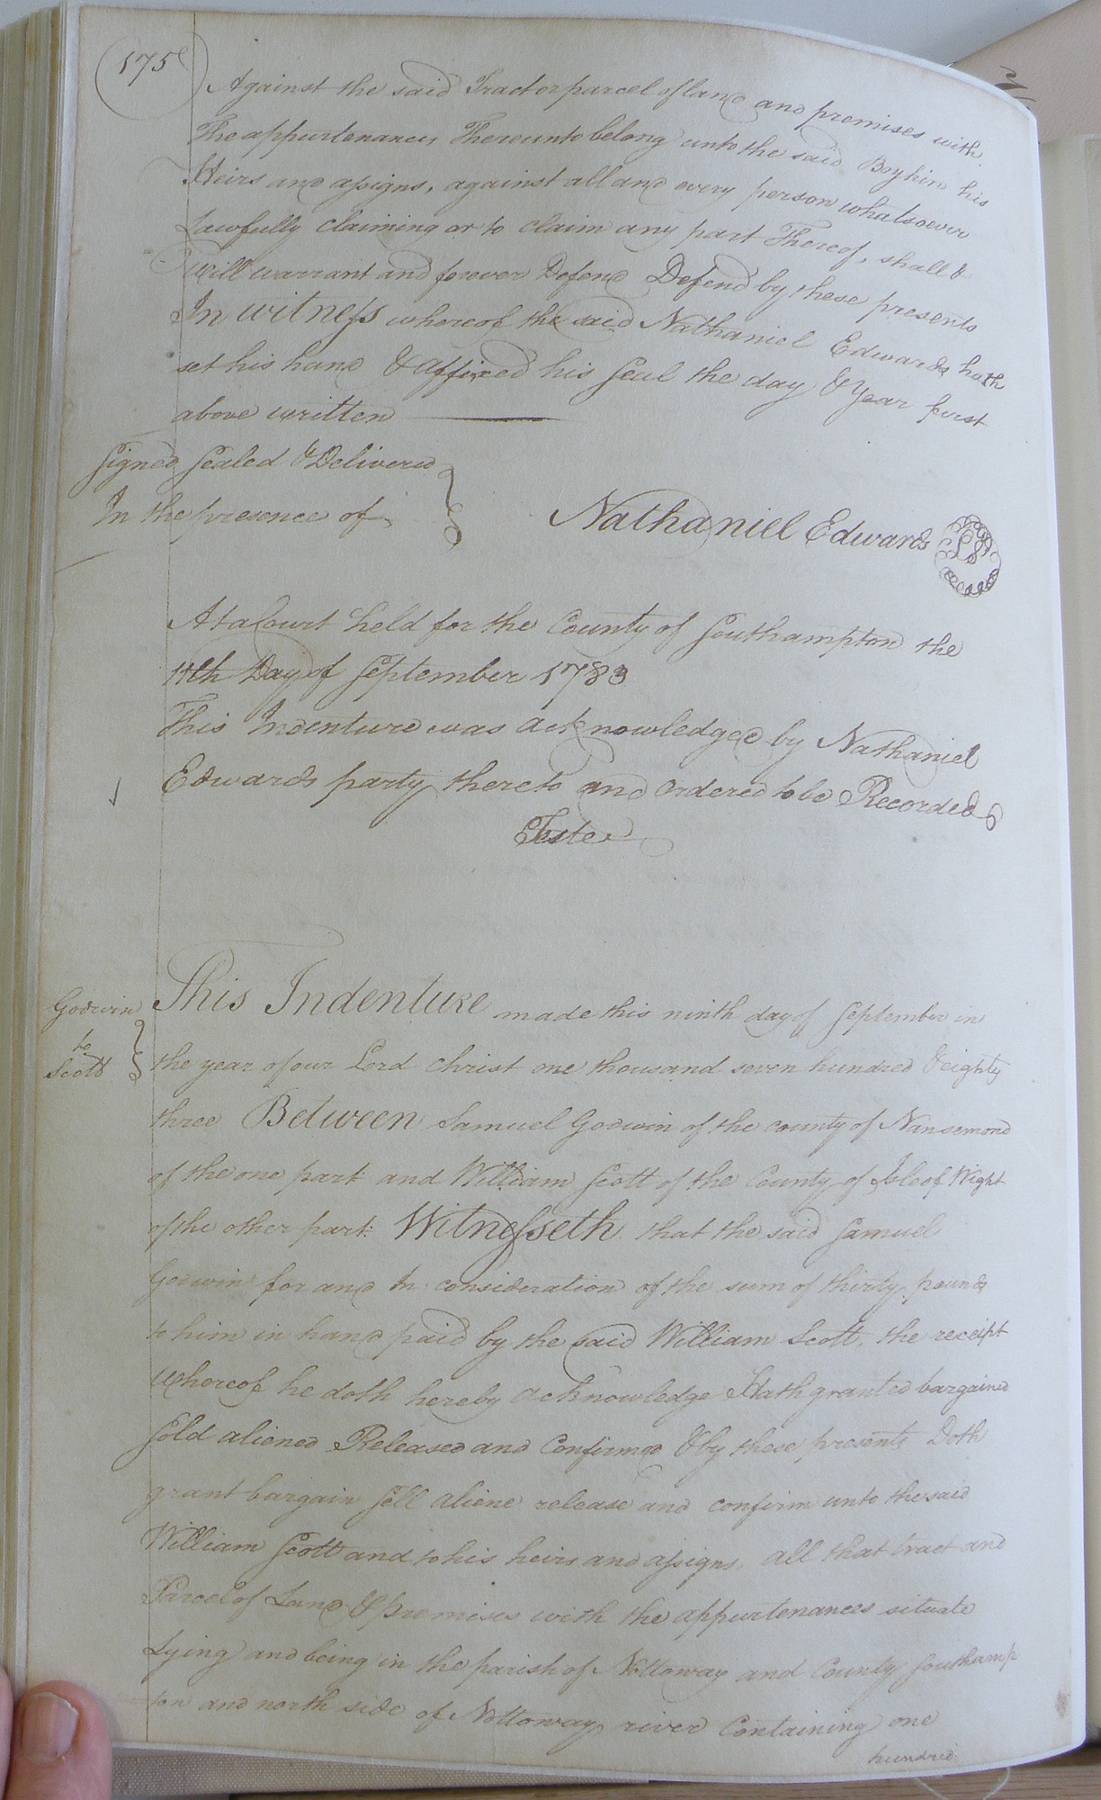 175
Against the said Tract or parcel of land and premises with
The appurtenances Thereunto belong unto the said Boykin his
Heirs and assigns, against all and every person whatsoever
Lawfully claiming or to claim any part Thereof, shall &
will warrant and forever Defend Defend by these presents
In witness whereof the said Nathaniel Edwards hath
set his hand & affixed his seal the day & year first
above written
Signed Sealed & Delivered
In the presence of
Nathaniel Edwards LS
At a Court held for the County of Southampton the
11th Day of September 1783
This Indenture was acknowledged by Nathaniel
Edwards party thereto and ordered to be Recorded
Teste
Godwin
to
Scott
This Indenture made this ninth day of September in
the year of our Lord Christ one thousand seven hundred & eighty
three Between Samuel Godwin of the county of Nansemond
of the one part and William Scott of the County of Isle of Wight
of the other part: Witnesseth that the said Samuel
Godwin for and In consideration of the sum of thirty pounds
to him in hand paid by the said William Scott, the receipt
whereof he doth hereby acknowledge Hath granted bargained
Sold aliened Released and Confirmed & by these presents Doth
grant bargain Sell aliene release and confirm unto the said
William Scott and to his heirs and assigns, all that tract and
Parcel of Land & premises with the appurtenances situate
Lying and being in the parish of Nottoway and County Southamp
ton and north side of Nottoway river Containing one
hundred